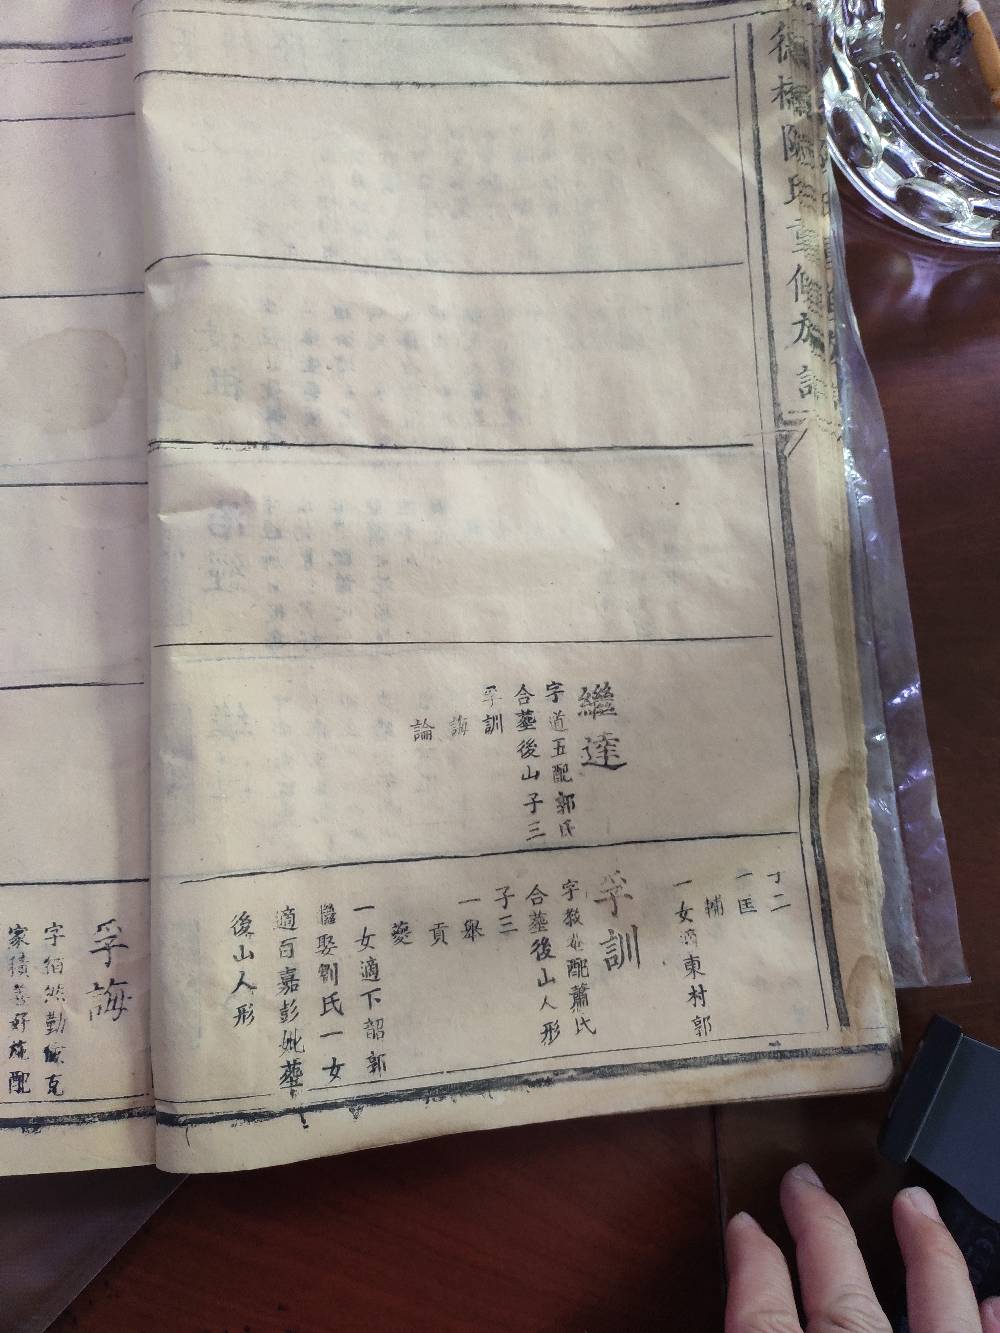 橋陳氏重修族譜
繼達
字道五配郭氏
合塟後山子三
孚訓
誨
論
子二
一匡
輔
一女適東村郭
孚訓
字教​配蕭氏
合塟後山人形
子三
一舉
貢
夔
一女適下韶郭
繼娶劉氏一女
適百嘉彭妣塟
後山人形
孚誨
字 然勤儉克
家積善好施配